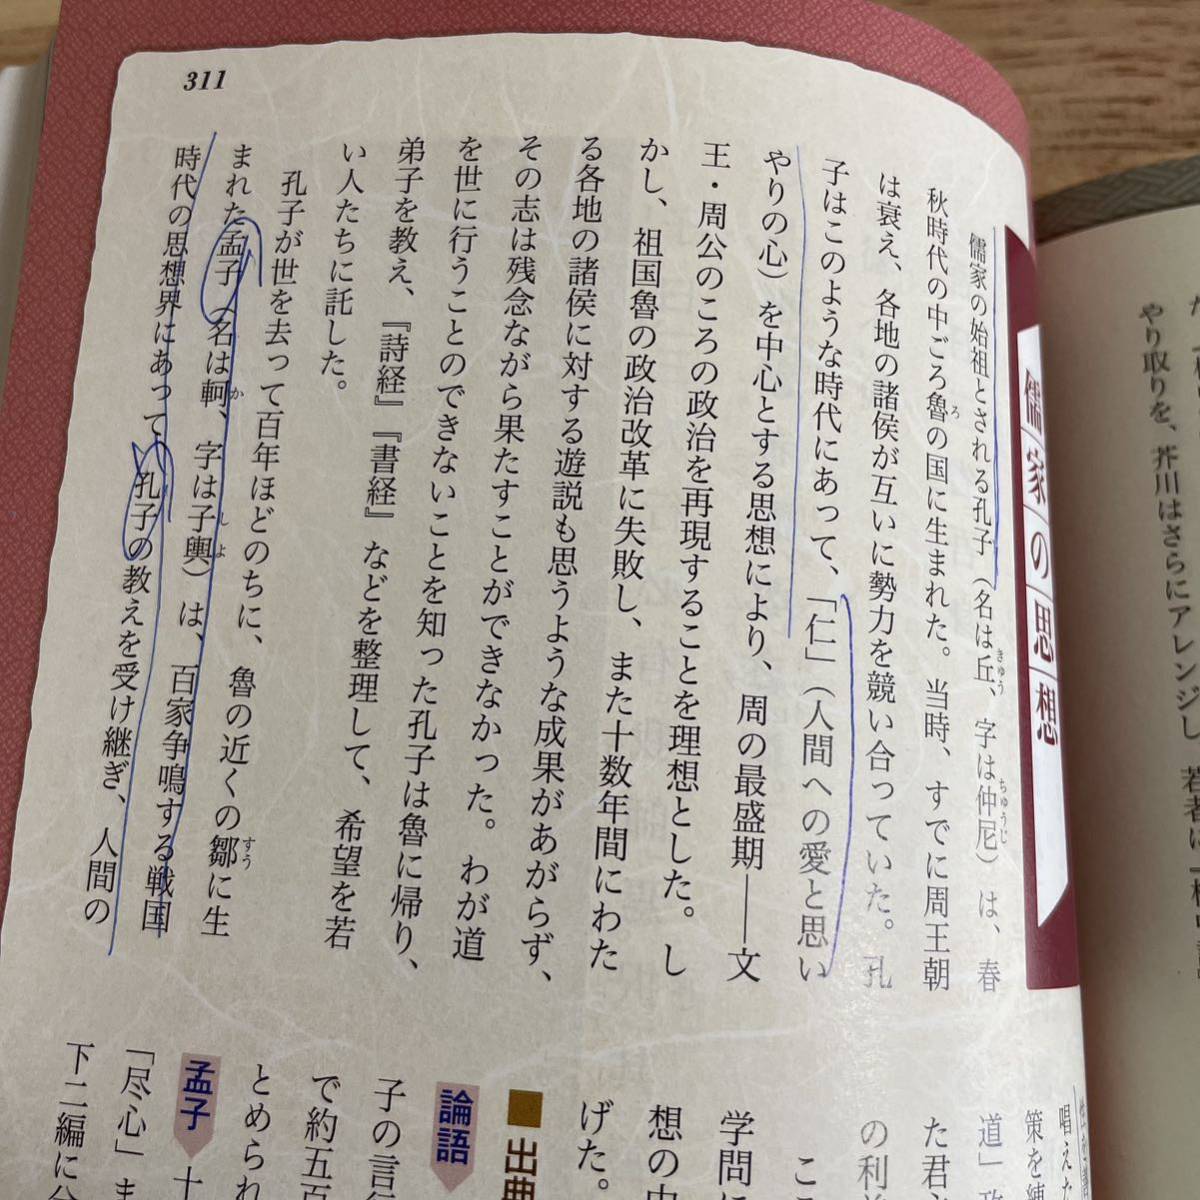 た「
やり取りを、芥川はさらにアレンジし、若者に「
儒家の思想
儒家の始祖とされる孔子（名は丘、字は仲尼）は、春
きゅう
ちゅうじ
秋時代の中ごろ魯の国に生まれた。当時、すでに周王朝
ろ
は衰え、各地の諸侯が互いに勢力を競い合っていた。孔
子はこのような時代にあって、「仁」（人間への愛と思い
やりの心）を中心とする思想により、周の最盛期――文
王・周公のころの政治を再現することを理想とした。し
かし、祖国魯の政治改革に失敗し、また十数年間にわた
る各地の諸侯に対する遊説も思うような成果があがらず、
その志は残念ながら果たすことができなかった。わが道
を世に行うことのできないことを知った孔子は魯に帰り、
弟子を教え、『詩経』『書経』などを整理して、希望を若
い人たちに託した。
孔子が世を去って百年ほどのちに、魯の近くの鄒に生
すう
まれた孟子（名は軻、字は子輿）は、百家争鳴する戦国
か
しよ
時代の思想界にあって孔子の教えを受け継ぎ、人間の
311
唱えた
策を練
道」政
た君主
の利
こ
学問に
想の中
げた。
■出典
論語
子の言行
で約五百
とめられ
孟子 十
「尽心」ま
下二編に分